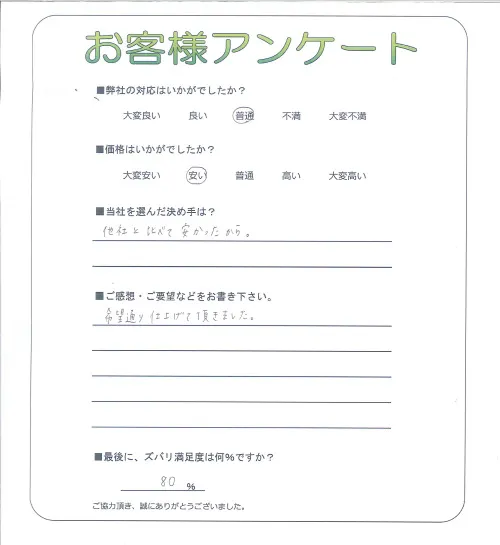 お客様アンケート
■弊社の対応はいかがでしたか？
大変良い 良い 普通 不満 大変不満
■価格はいかがでしたか？
大変安い 安い 普通 高い 大変高い
■当社を選んだ決め手は？
他社と比べて安かったから。
■ご感想・ご要望などをお書き下さい。
希望通り仕上げて頂きました。
■最後に、ズバリ満足度は何%ですか？
80 %
ご協力頂き、誠にありがとうございました。